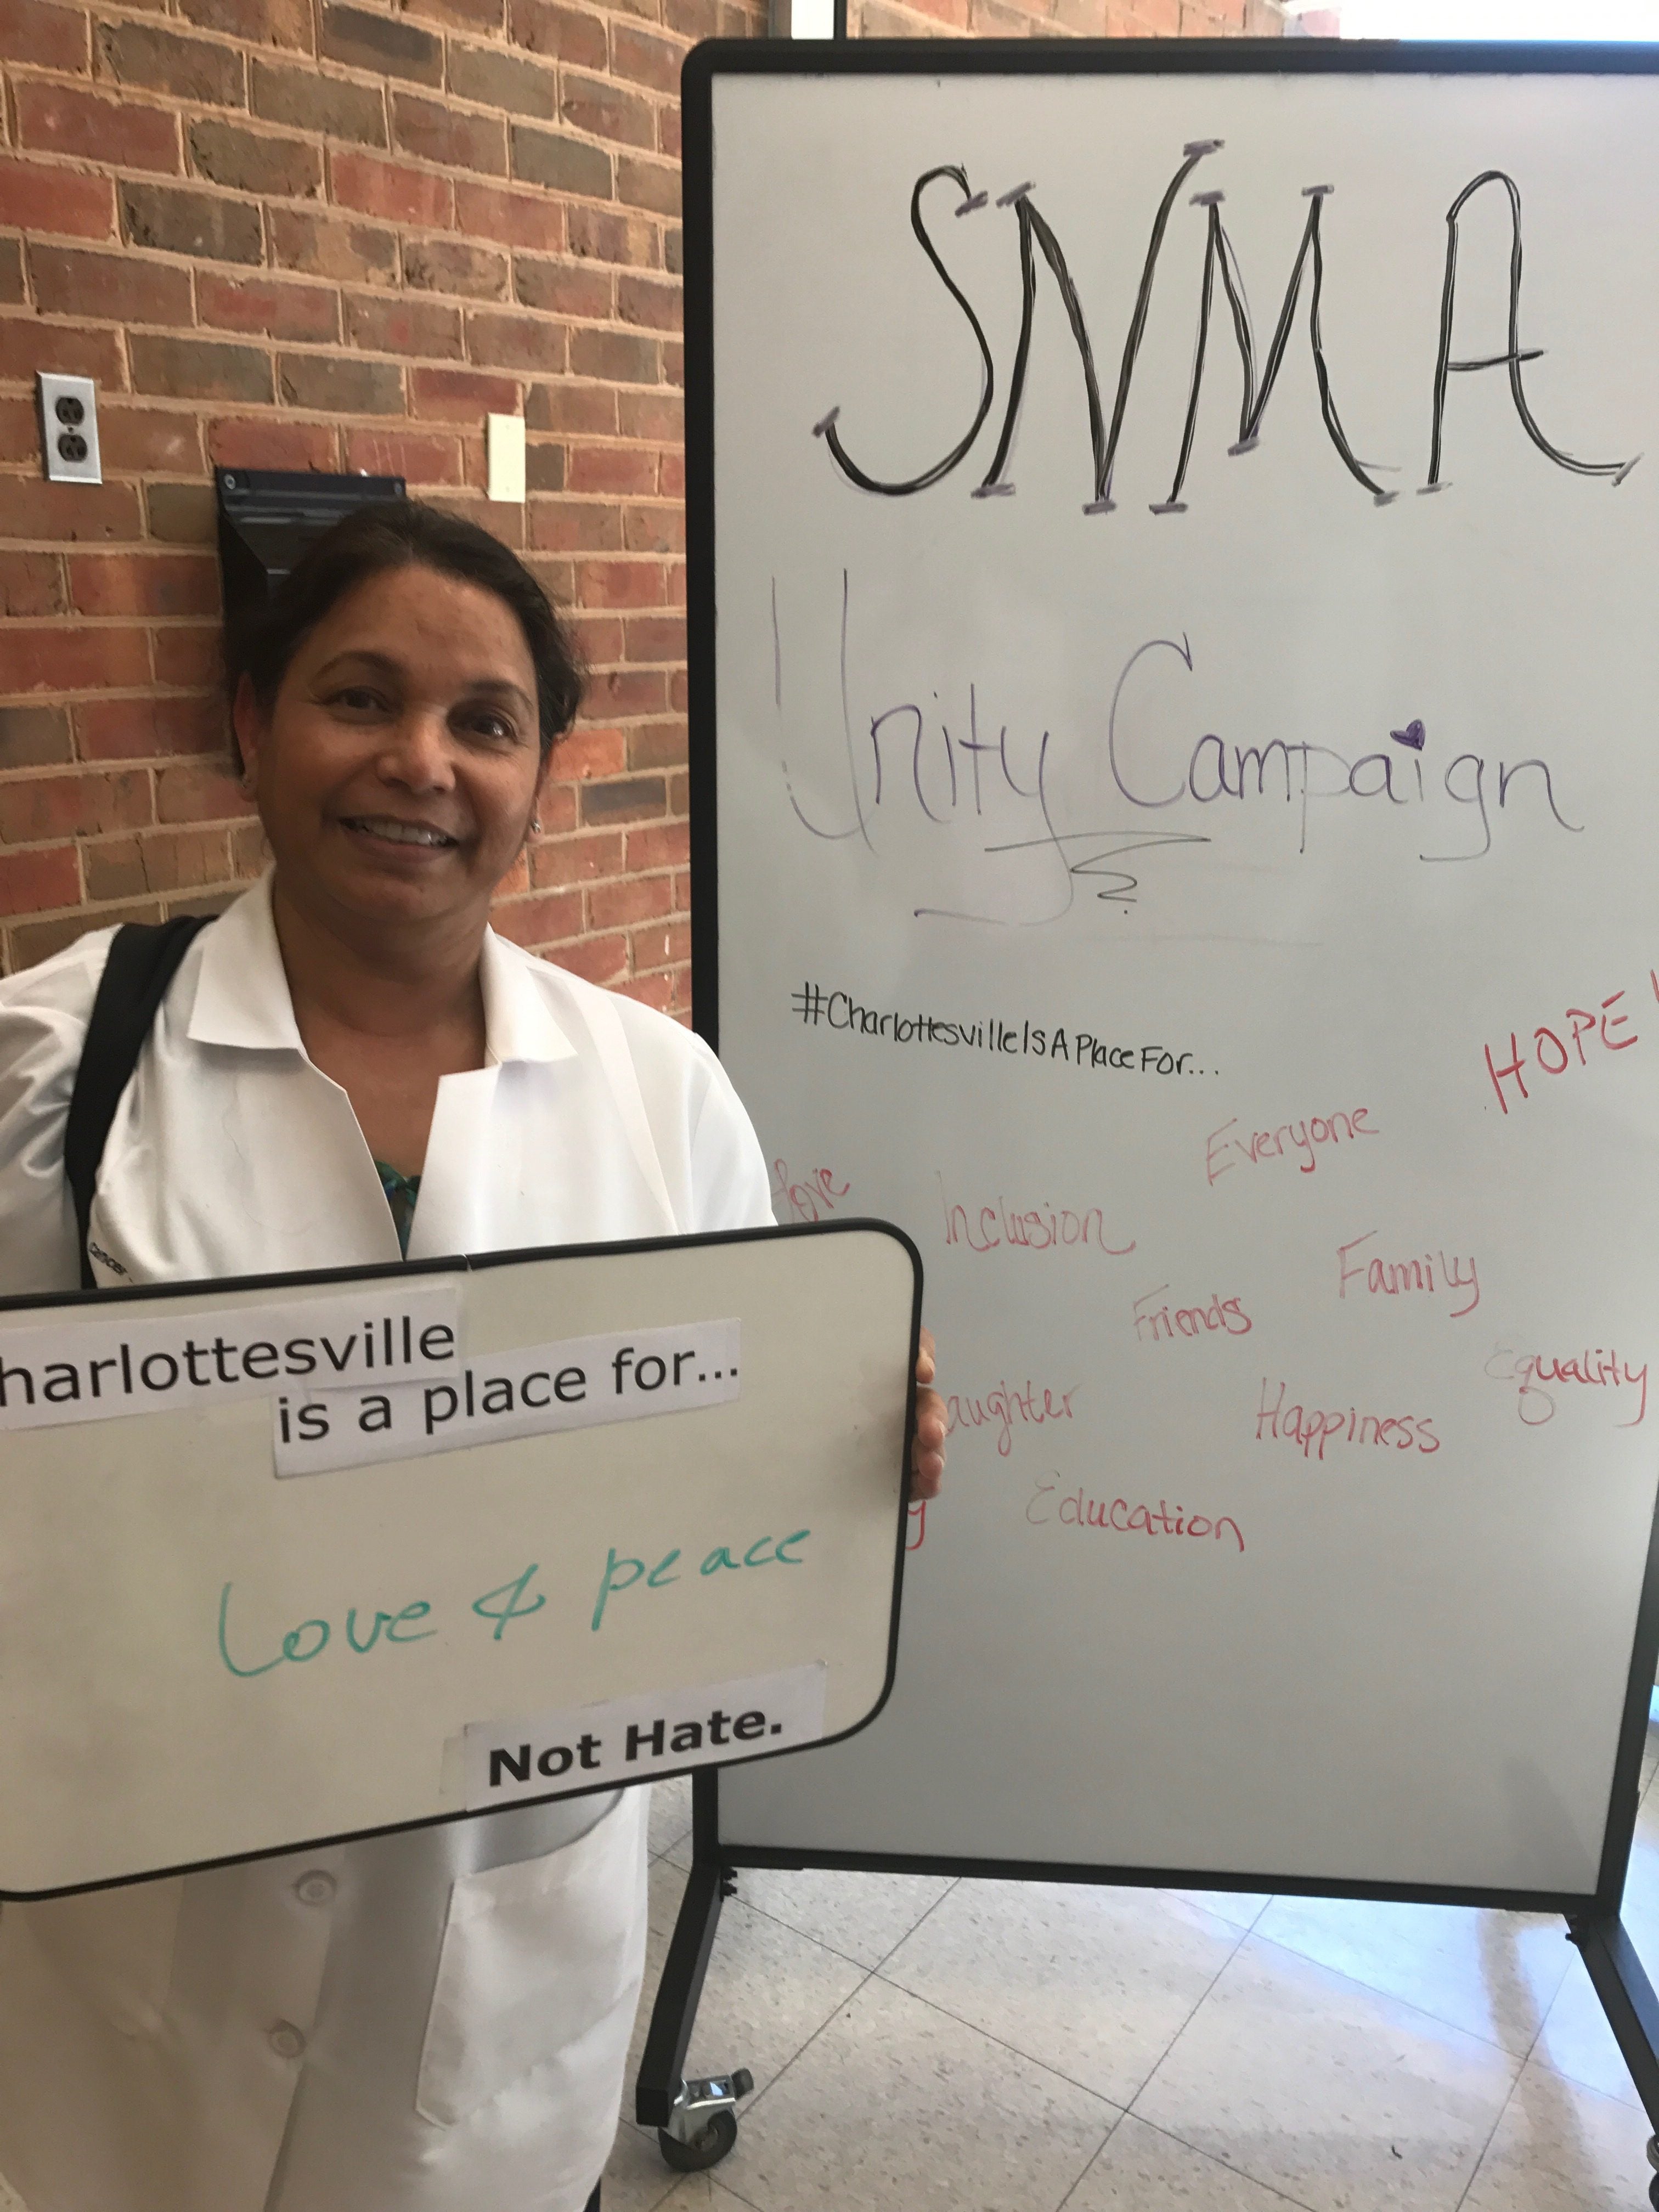 SNMA
Unity Campaign
#CharlottesvilleIsAPlaceFor...
HOPE!
Everyone
love
Inclusion
Family
Friends
Equality
aughter
Happiness
Education
y
harlottesville
is a place for...
Love & peace
Not Hate.